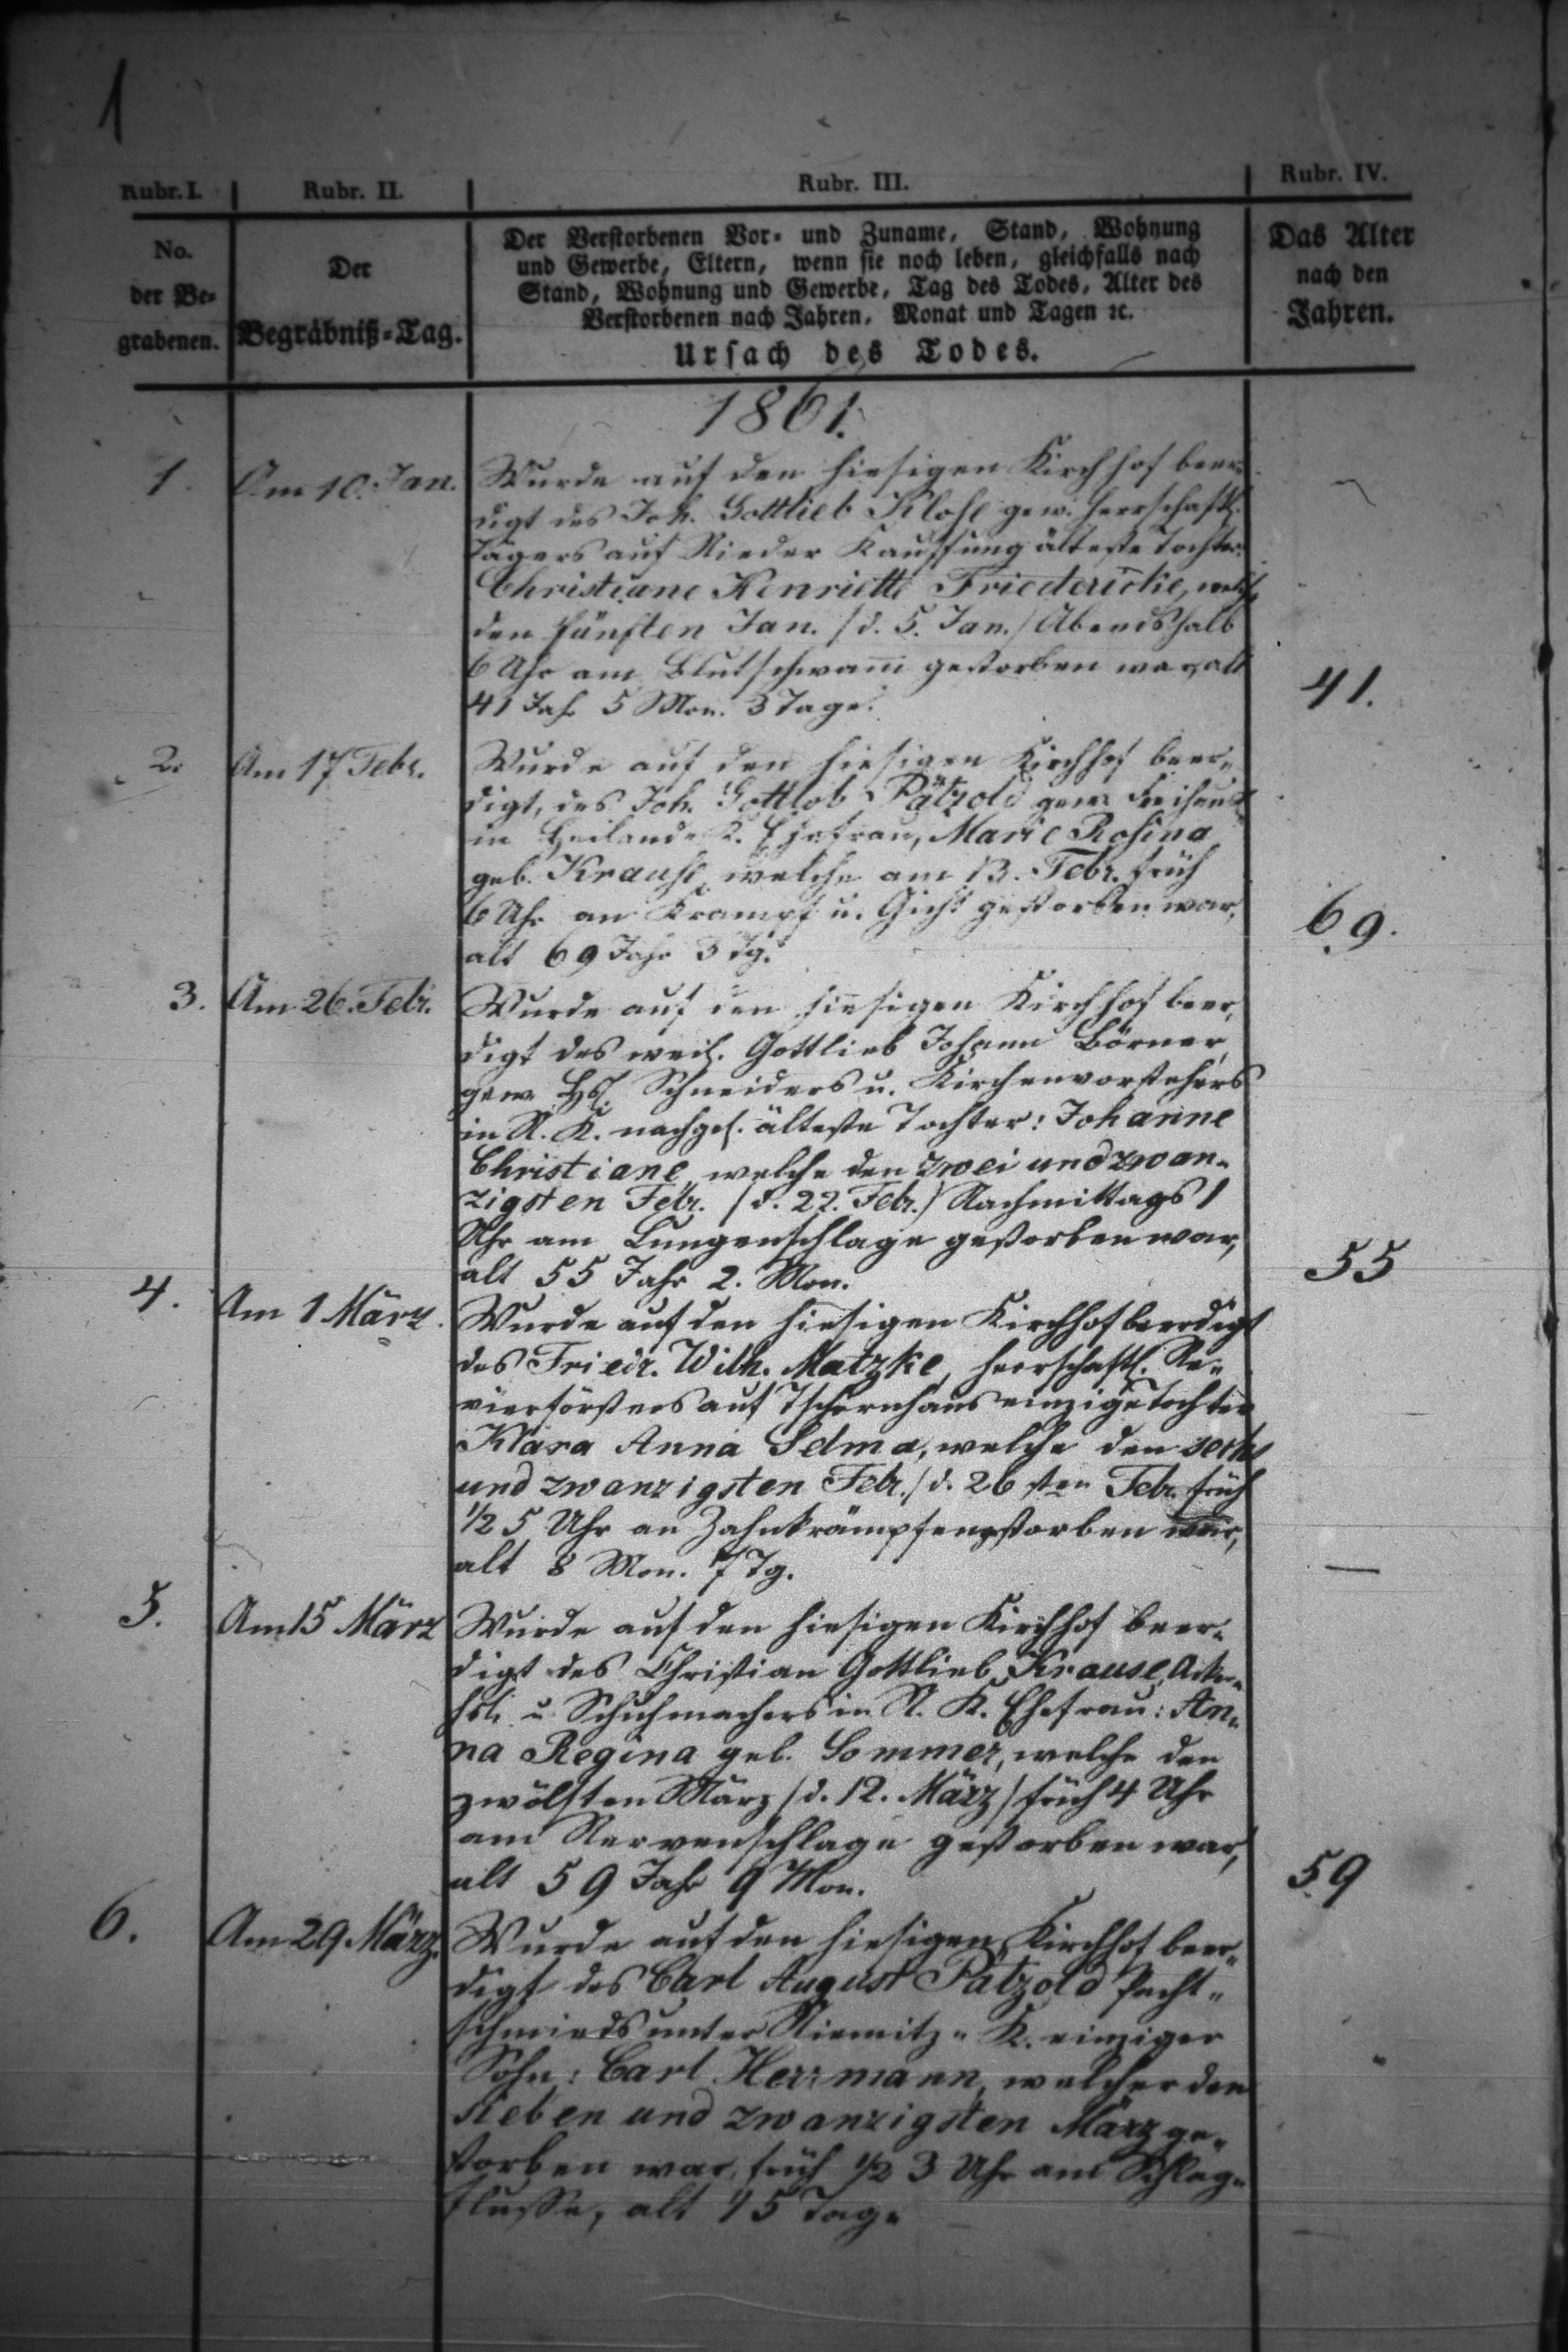 1
Rubr. I. Rubr. II. Rubr. III. Rubr. IV.
No.
der Be-
grabenen.
Der
Begräbniß-Tag.
Der Verstorbenen Vor- und Zuname, Stand, Wohnung
und Gewerbe, Eltern, wenn sie noch leben, gleichfalls nach
Stand, Wohnung und Gewerbe, Tag des Todes, Alter des
Verstorbenen nach Jahren, Monat und Tagen ꝛc.
Ursach des Todes.
Das Alter
nach den
Jahren.
1861.
1. Am 10. Jan. Wurde auf den hiesigen Kirchhof beer-
digt des Joh. Gottlieb Klose gew. herrschaftl.
Jägers auf Nieder Kauffung älteste Tochter:
Christiane Henriette Friedericke, welche
den fünften Jan. /d. 5. Jan./ Abends halb
6 Uhr am Blutschwam̅ gestorben war, alt
41 Jahr 5 Mon. 3 Tage. 41.
2. Am 17 Febr. Wurde auf den hiesigen Kirchhof beer-
digt, des Joh. Gottlob Pätzold gew. Freihäusl.
in Heiland-K. Ehefrau, Marie Rosina
geb. Krause, welche am 13. Febr. früh
6 Uhr an Krampf u. Gicht gestorben war,
alt 69 Jahr 3 Tg. 69.
3. Am 26. Febr. Wurde auf den hiesigen Kirchhof beer-
digt des weil. Gottlieb Johann Börner,
gew. Hsl. Schneiders u. Kirchenvorstehers
in N. K. nachgel. älteste Tochter: Johanne
Christiane, welche den zwei und zwan-
zigsten Febr. /d. 22. Febr./ Nachmittags 1
Uhr am Lungenschlage gestorben war,
alt 55 Jahr 2. Mon. 55
4. Am 1 März. Wurde auf den hiesigen Kirchhof beerdigt
des Friedr. Wilh. Matzke, herrschaftl. Re-
vierförsters auf Tschirnhaus einzige Tochter
Klara Anna Selma, welche den sechs
und zwanzigsten Febr. /d. 26sten Febr. früh
1/2 5 Uhr an Zahnkrämpfen gestorben war,
alt 8 Mon. 7 Tg. —
5. Am 15 März Wurde auf den hiesigen Kirchhof beer-
digt des Christian Gottlieb Krause, Acker-
hsl. u. Schuhmachers in N. K. Ehefrau: An-
na Regina geb. Sommer, welche den
zwölften März /d. 12. März/ früh 4 Uhr
am Nervenschlage gestorben war,
alt 59 Jahr 9 Mon. 59
6. Am 29 März. Wurde auf den hiesigen Kirchhof beer-
digt des Carl August Pätzold Pacht-
schmieds unter Niemitz-K. einziger
Sohn: Carl Herrmann, welcher den
sieben und zwanzigsten März ge-
storben war, früh 1/2 3 Uhr am Schlag-
flusse, alt 15 Tage